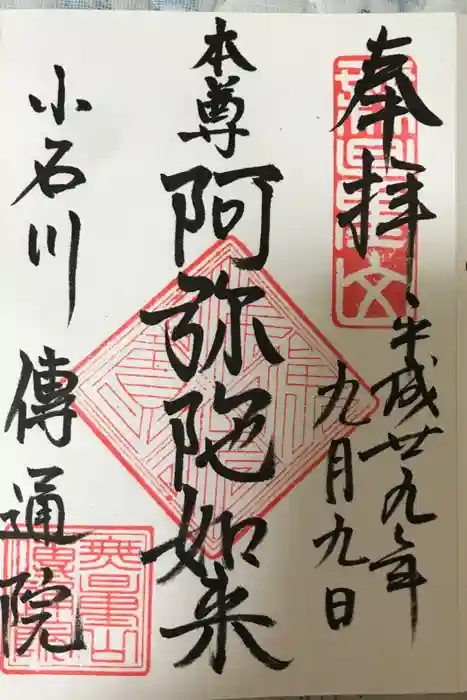 奉拝
平成廿九年
九月九日
本尊
阿弥陀如来
小石川
傳通院